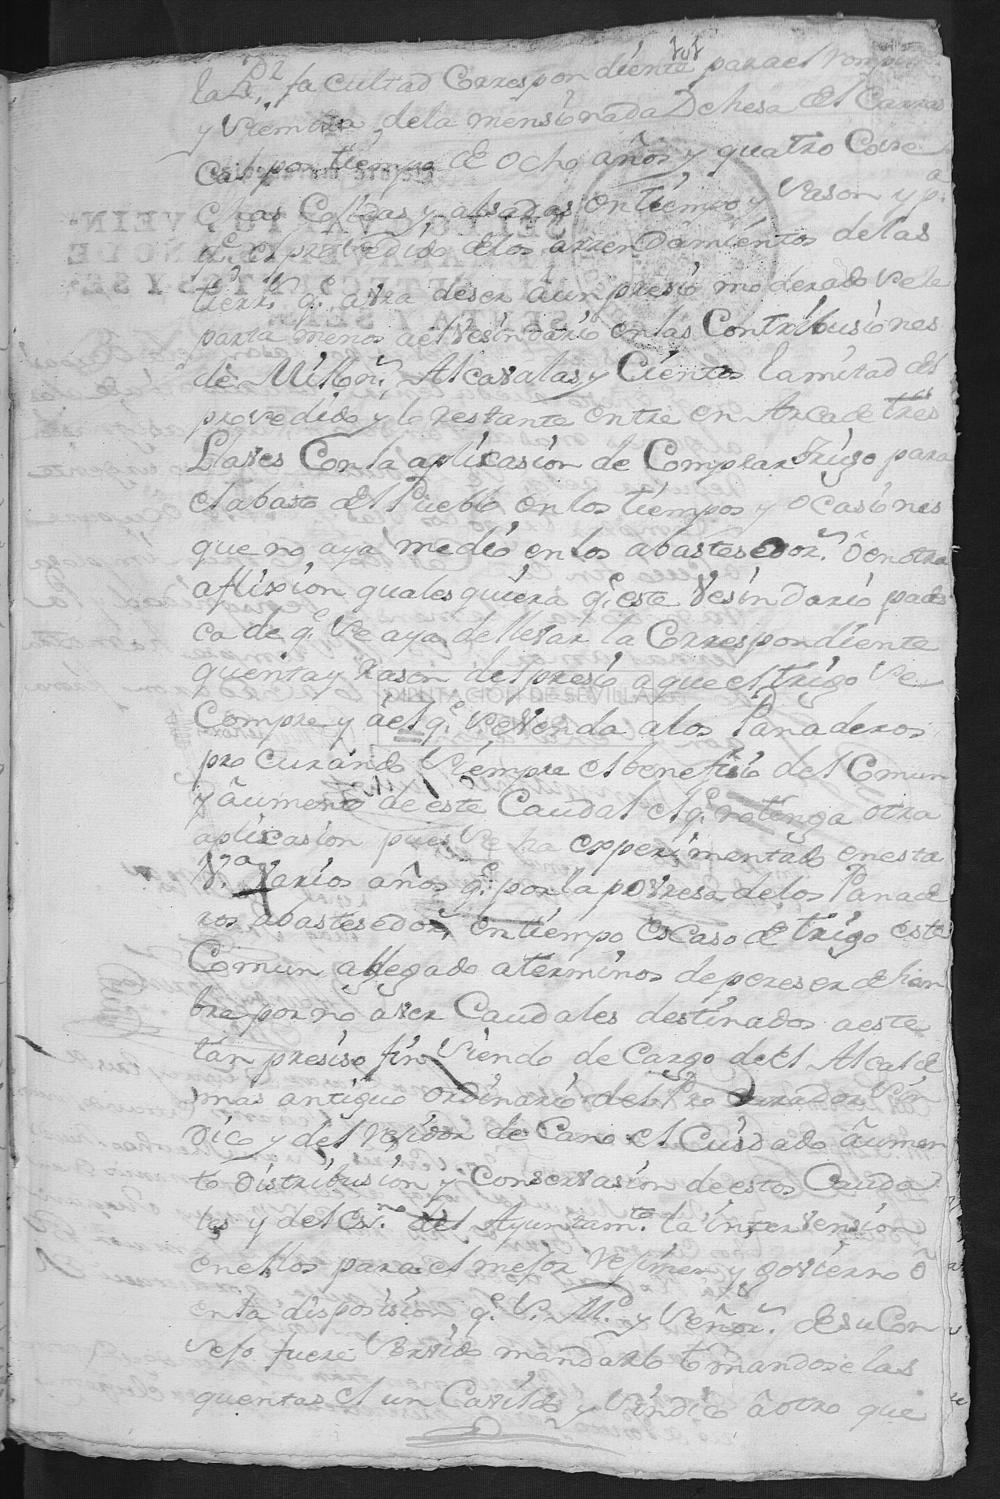 101
la Rl. facultad Correspondiente para el rompim
y siembra, dela mensionada Dehesa del Carras
Cal por tiempo de ocho años y quatro Cose
chas Cojidas y alsadas en tiempo y Sason y pa.
qe. el provedido delos arrendamientos delas
tierrs. qe. a ira deser a un presio moderado se le
parta menos a el Vesindario en las Contribusiones
de Millons. Alcavalas y Cientos la mitad del
provedido y lo restante entre en Arca de tres
Llaves Con la aplicasion de Comprar Trigo para
el abasto del Pueblo en los tiempos y ocasiones
que no aya medio en los abastesedors. ô en otra
aflixion quales quiera qe. este Vesindario pades
ca de qe. se aya de llevar la Correspondiente
quenta y rason del presio a que el trigo se
Compre y a el qe. se venda a los Panaderos
procurando siempre el benefisio del Comun
y aumento de este Caudal el qe. no tenga otra
aplicasion pues se ha experimentado en esta
Va. Varios años qe. por la povresa delos Panade
ros abastesedors. en tiempo escaso de trigo este
Comun a llegado a terminos de pereser de ham
bre por no aver Caudales destinados a este
tan presiso fin siendo de Cargo del Alcalde
mas antiguo ordinario del Procurador Sin
dico y del regidor de Cano el Cuidado aumen
to distribusion y Conservasion de estos Cauda
les y del Esno. del Ayuntamto. la intervension
en ellos para el mejor regimen y govierno ô
en la disposision qe. S. M. y Señors. de su Con
sejo fuere Servido mandarlo tomandose las
quentas el un Cavildo y Sindico a otro que